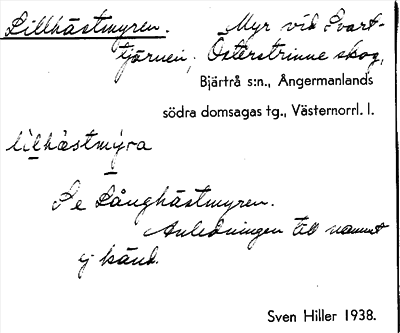 Lillhästmyren. Myr vid Svart-
tjärnen, Österstrinne skog,
Bjärtrå s:n., Ångermanlands
södra domsagas tg., Västernorrl. l.
lilhästmyra
Se Långhästmyren.
Anledningen till namnet
ej känd.
Sven Hiller 1938.